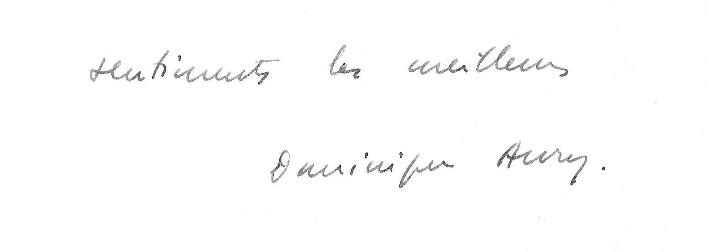 sentiments les meilleurs
Dominique Aury.